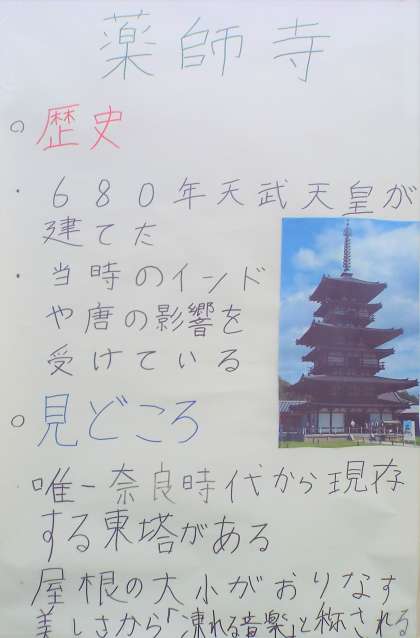 薬師寺
○歴史
・680年天武天皇が
建てた
・当時のインド
や唐の影響を
受けている
○見どころ
唯一奈良時代から現存
する東塔がある
屋根の大小がおりなす
美しさから「凍れる音楽」と称される